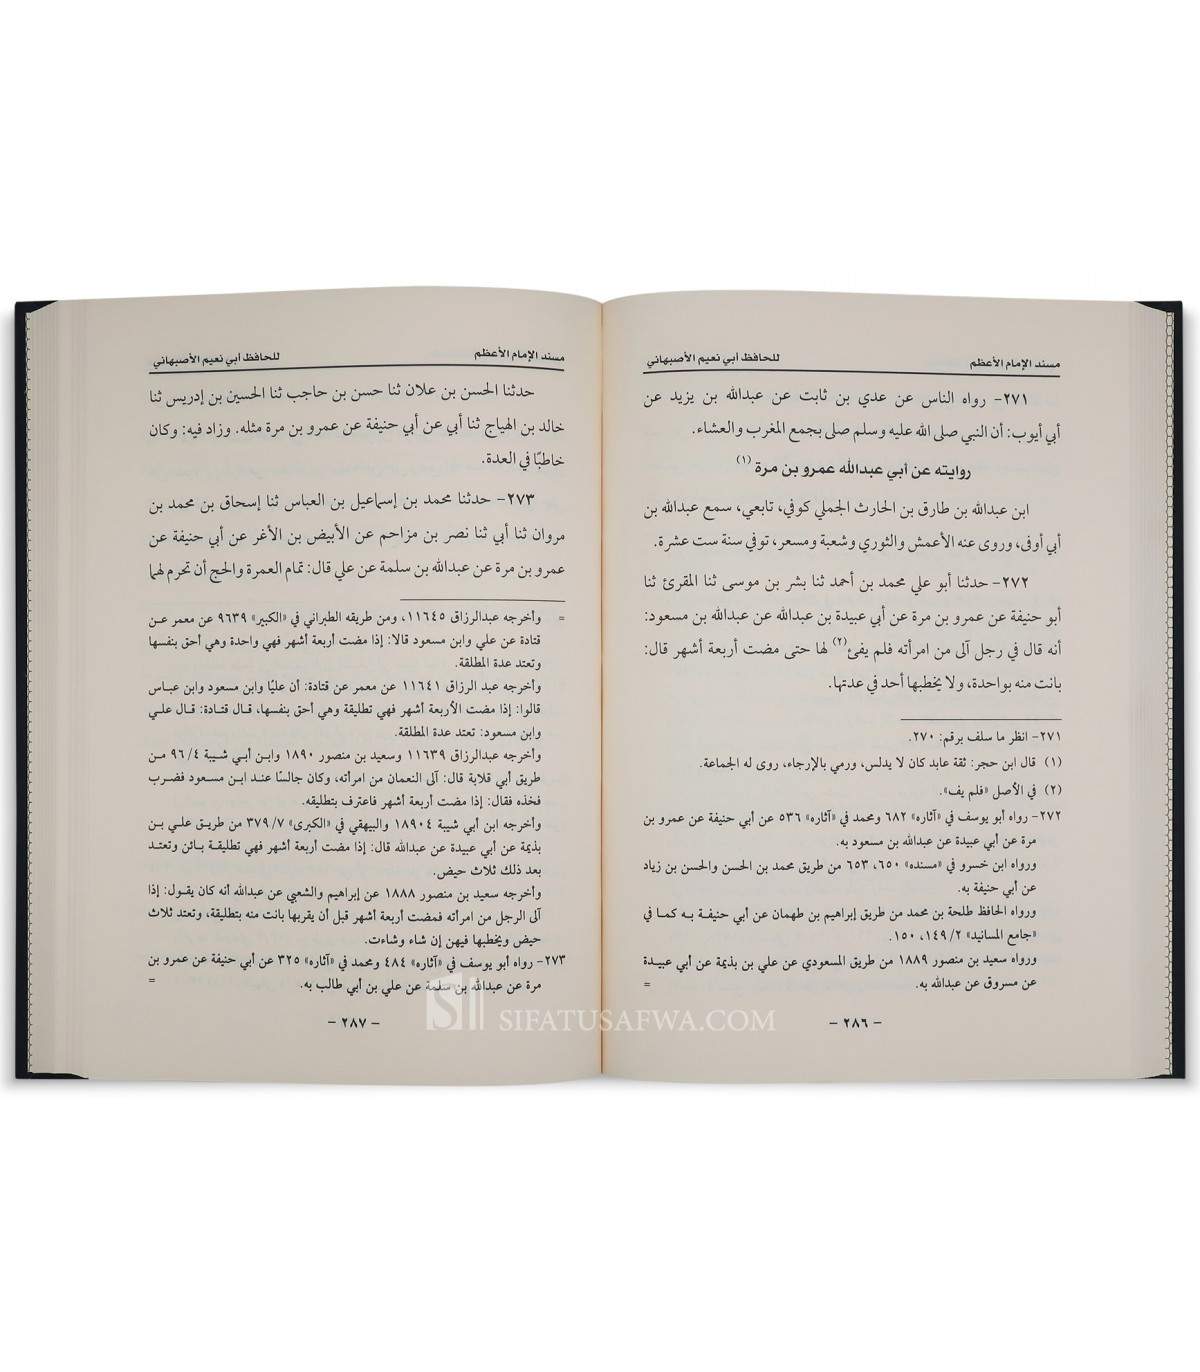 مسند الإمام الأعظم للحافظ أبي نعيم الأصبهاني
٢٧١- رواه الناس عن عدي بن ثابت عن عبدالله بن يزيد عن
أبي أيوب: أن النبي صلى الله عليه وسلم صلى بجمع المغرب والعشاء.
روايته عن أبي عبدالله عمرو بن مرة (١)
ابن عبدالله بن طارق بن الحارث الجملي كوفي، تابعي، سمع عبدالله بن
أبي أوفى، وروى عنه الأعمش والثوري وشعبة ومسعر، توفي سنة ست عشرة.
٢٧٢- حدثنا أبو علي محمد بن أحمد ثنا بشر بن موسى ثنا المقرئ ثنا
أبو حنيفة عن عمرو بن مرة عن أبي عبيدة بن عبدالله عن عبدالله بن مسعود:
أنه قال في رجل آلى من امرأته فلم يفئ(٢) لها حتى مضت أربعة أشهر قال:
بانت منه بواحدة، ولا يخطبها أحد في عدتها.
٢٧١- انظر ما سلف برقم: ٢٧٠.
(١) قال ابن حجر: ثقة عابد كان لا يدلس، ورمي بالإرجاء، روى له الجماعة.
(٢) في الأصل «فلم يف».
٢٧٢- رواه أبو يوسف في «آثاره» ٦٨٢ ومحمد في «آثاره» ٥٣٦ عن أبي حنيفة عن عمرو بن
مرة عن أبي عبيدة عن عبدالله بن مسعود به.
ورواه ابن خسرو في «مسنده» ٦٥٠، ٦٥٣ من طريق محمد بن الحسن والحسن بن زياد
عن أبي حنيفة به.
ورواه الحافظ طلحة بن محمد من طريق إبراهيم بن طهمان عن أبي حنيفة به كما في
«جامع المسانيد» ٢/ ١٤٩، ١٥٠.
ورواه سعيد بن منصور ١٨٨٩ من طريق المسعودي عن علي بن بذيمة عن أبي عبيدة
عن مسروق عن عبدالله به. =
- ٢٨٦ -
مسند الإمام الأعظم للحافظ أبي نعيم الأصبهاني
حدثنا الحسن بن علان ثنا حسن بن حاجب ثنا الحسين بن إدريس ثنا
خالد بن الهياج ثنا أبي عن أبي حنيفة عن عمرو بن مرة مثله. وزاد فيه: وكان
خاطبًا في العدة.
٢٧٣- حدثنا محمد بن إسماعيل بن العباس ثنا إسحاق بن محمد بن
مروان ثنا أبي ثنا نصر بن مزاحم عن الأبيض بن الأغر عن أبي حنيفة عن
عمرو بن مرة عن عبدالله بن سلمة عن علي قال: تمام العمرة والحج أن تحرم لهما
= وأخرجه عبدالرزاق ١١٦٤٥، ومن طريقه الطبراني في «الكبير» ٩٦٣٩ عن معمر عن
قتادة عن علي وابن مسعود قالا: إذا مضت أربعة أشهر فهي واحدة وهي أحق بنفسها
وتعتد عدة المطلقة.
وأخرجه عبد الرزاق ١١٦٤١ عن معمر عن قتادة: أن عليًا وابن مسعود وابن عباس
قالوا: إذا مضت الأربعة أشهر فهي تطليقة وهي أحق بنفسها، قال قتادة: قال علي
وابن مسعود: تعتد عدة المطلقة.
وأخرجه عبدالرزاق ١١٦٣٩ وسعيد بن منصور ١٨٩٠ وابن أبي شيبة ٤/ ٩٦ من
طريق أبي قلابة قال: آلى النعمان من امرأته، وكان جالسًا عند ابن مسعود فضرب
فخذه فقال: إذا مضت أربعة أشهر فاعترف بتطليقه.
وأخرجه ابن أبي شيبة ١٨٩٠٤ والبيهقي في «الكبرى» ٧/ ٣٧٩ من طريق علي بن
بذيمة عن أبي عبيدة عن عبدالله قال: إذا مضت أربعة أشهر فهي تطليقة بائن وتعتد
بعد ذلك ثلاث حيض.
وأخرجه سعيد بن منصور ١٨٨٨ عن إبراهيم والشعبي عن عبدالله أنه كان يقول: إذا
آلى الرجل من امرأته فمضت أربعة أشهر قبل أن يقربها بانت منه بتطليقة، وتعتد ثلاث
حيض ويخطبها فيهن إن شاء وشاءت.
٢٧٣- رواه أبو يوسف في «آثاره» ٤٨٤ ومحمد في «آثاره» ٣٢٥ عن أبي حنيفة عن عمرو بن
مرة عن عبدالله بن سلمة عن علي بن أبي طالب به. =
- ٢٨٧ -
SIFATUSAFWA.COM